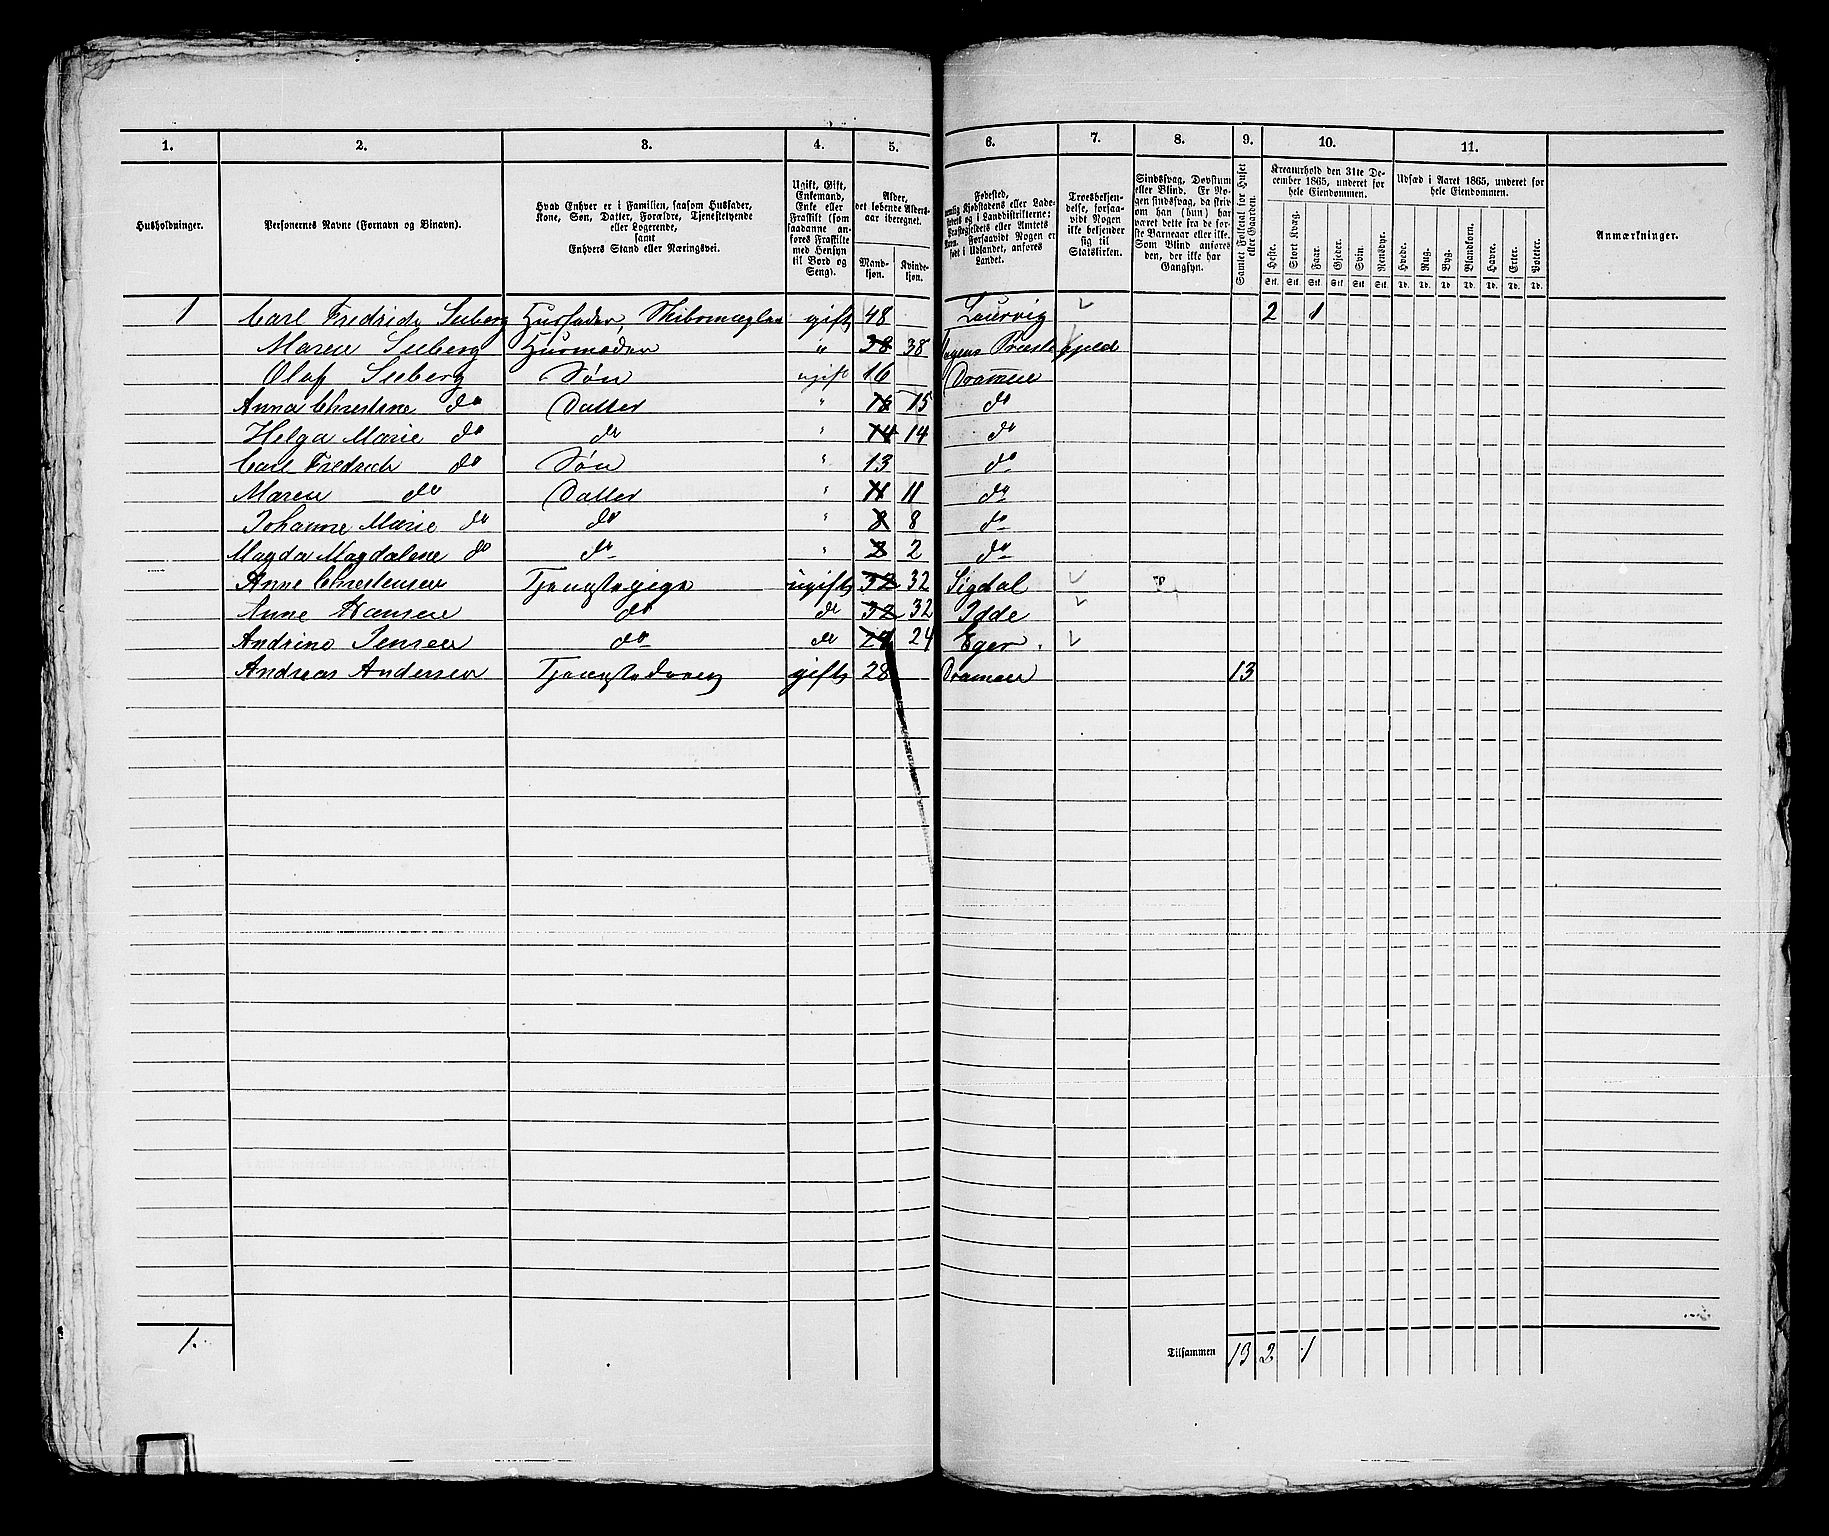 1. 2. 3. 4. 5. 6. 7. 8. 9. 10. 11.
Husholdninger.
Personernes Navne (Fornavn og Binavn).
Hvad Enhver er i Familien, saasom Husfader,
Kone, Søn, Datter, Forældre, Tjenestetyende
eller Logerende,
samt
Enhvers Stand eller Næringsvei.
Ugift, Gift,
Enkemand,
Enke eller
Fraskilt (som
saadanne anføres Fraskilte
med Hensyn
til Bord og
Seng).
Alder,
det løbende Aldersaar iberegnet.
Mandkjøn.
Kvindekjøn.
Fødested,
Landet.
Troesbekjendelse, forsaavidt Nogen
ikke bekjender
sig til
Statskirken.
Sindssvag, Døvstum
eller Blind. Er Nogen sindssvag, da skriv
om han (hun) har
været dette fra de første Barneaar eller ikke.
Som Blind anføres
den, der ikke har
Gangsyn.
Samlet Folketal for Huset
eller Gaarden.
Kreaturhold den 31te December 1865, underet for
hele Eiendommen.
Heste. Stort Kvæg. Faar. Gjeder. Svin. Rensdyr.
Stk. Stk. Stk. Stk. Stk. Stk.
Udsæd i Aaret 1865, underet for
hele Eiendommen.
Hvede. Rug. Byg. Blandkorn. Havre. Erter. Poteter.
Td. Td. Td. Td. Td. Td. Td.
Anmærkninger.
1 Carl Fredrich Seeberg Husfader, gift 48 Laurvig 2 1
Maren Seeberg Husmoder " 38 38 Præstegjeld
Olaf Seeberg Søn ugift 16 Drammen
Anna Christine do Datter " 15 15 do
Helga Marie do do " 14 14 do
Carl Fredrich do Søn " 13 do
Maren do Datter " 11 11 do
Johanne Marie do do " 8 8 do
Magda Magdalene do do " 2 2 do
Anne Christensen Tjenestepige ugift 32 32 Sigdal
Anne Hansen do do 32 32 Idde
Andrine Jensen do do 24 24 Eger
Andreas Andersen Tjenestedreng gift 28 Drammen 13
1. Tilsammen 13 2 1